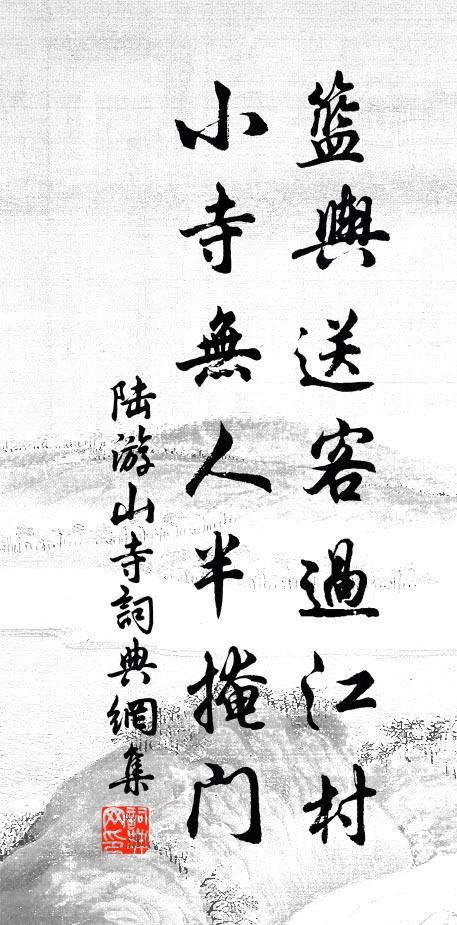 籃輿送客過江村
小寺無人半掩門
陸游山寺詞典網集